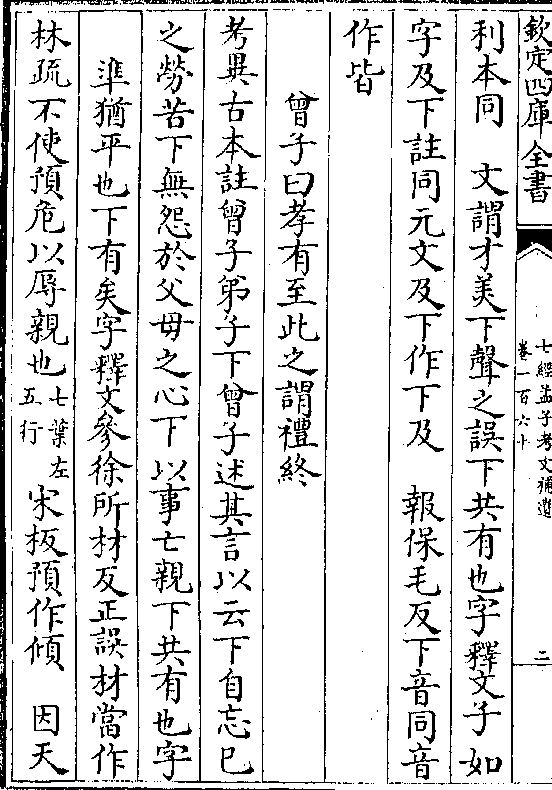 欽定四庫全書
七經孟子考文補遺
卷一百六十
二
利本同　文謂才美下聲之誤下共有也字釋文子如
字及下註同元文及下作下及　報保毛反下音同音
作皆
曾子曰孝有至此之謂禮終
考異古本註曾子弟子下曾子述其言以云下自忘已
之勞苦下無怨於父母之心下以事亡親下共有也字
準猶平也下有矣字釋文參徐所材反正誤材當作
林疏不使預危以辱親也七葉左五行　宋板預作傾　因天